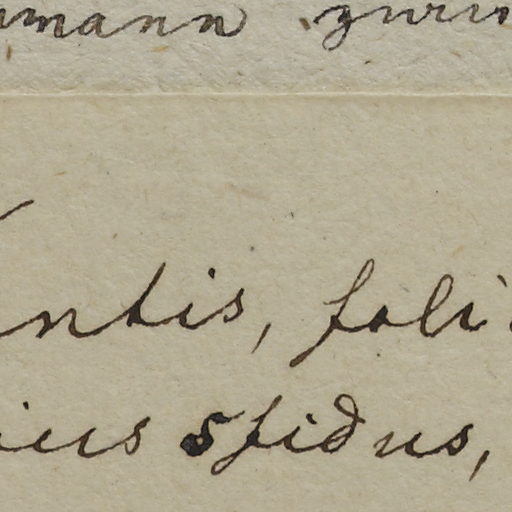 mann zurü
ntis, foli
ius 5fidus,